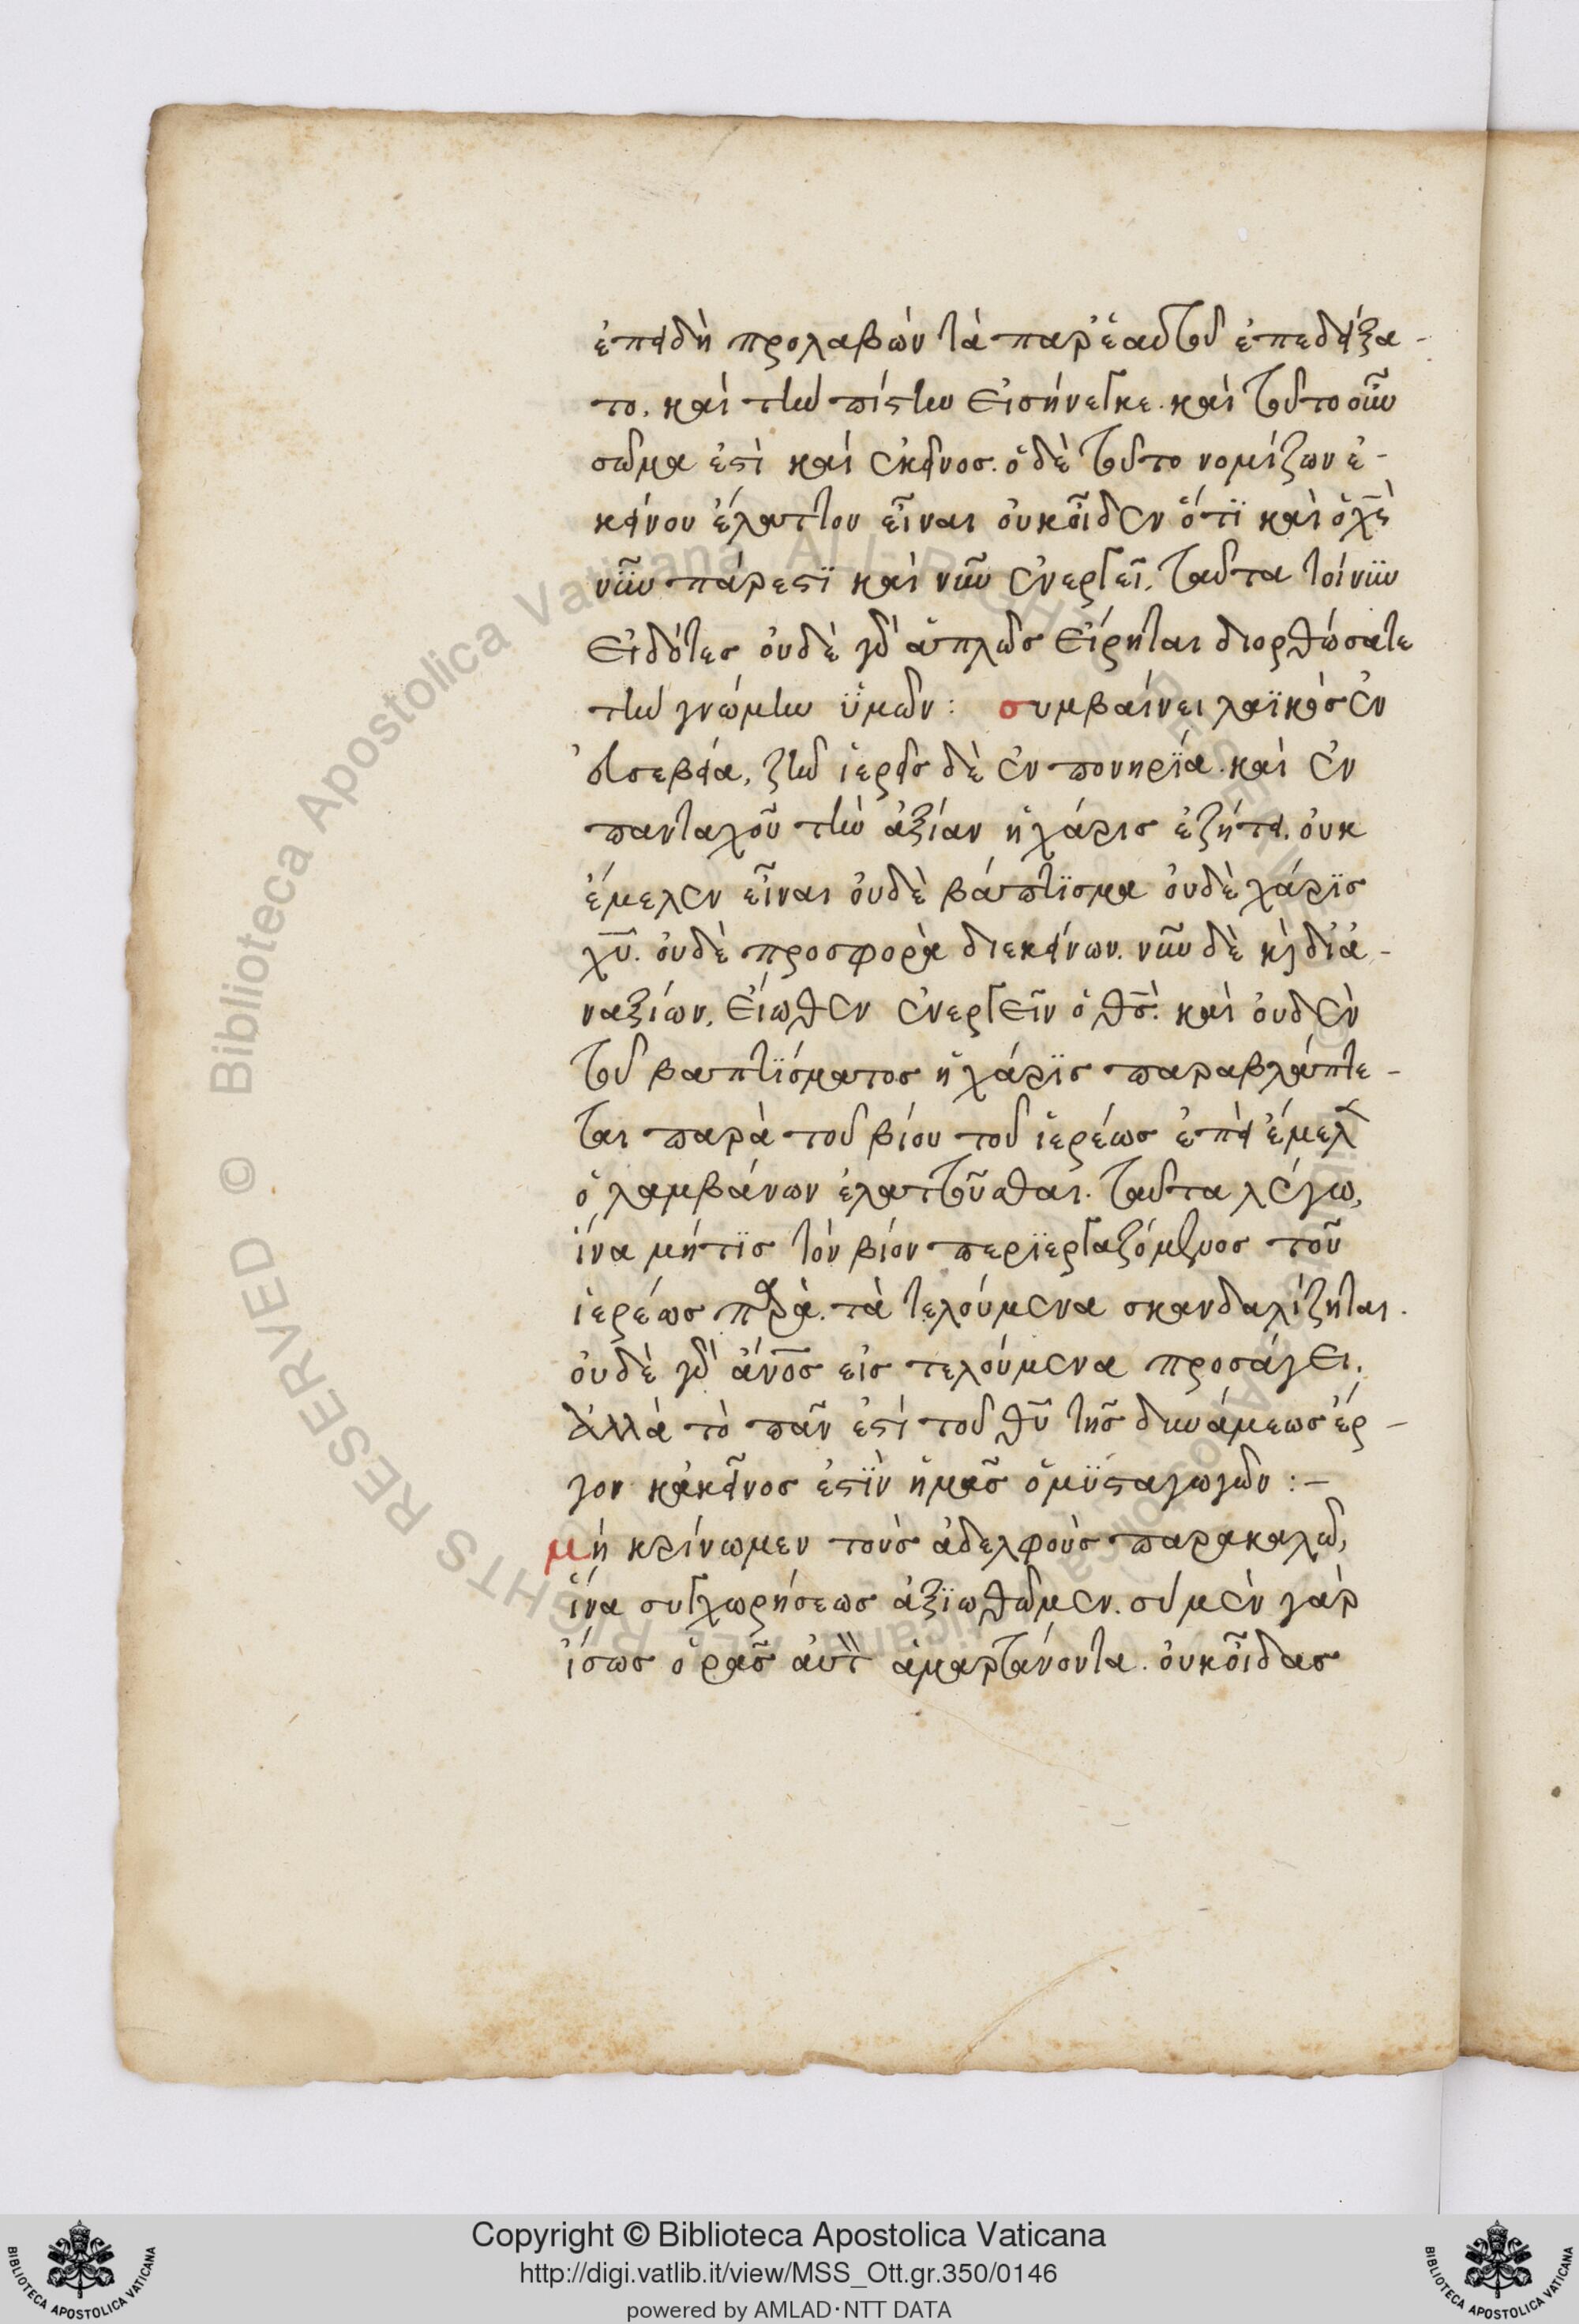 ἐπειδὴ προλαβὼν τὰ παρ' ἑαυτοῦ ἐπεδείξα-
το. καὶ τὴν πίστιν εἰσήνεγκε. καὶ τοῦτο οὖν
σῶμα ἐστὶ καὶ ἐκεῖνος. ὁ δὲ τοῦτο νομίζων ἐ-
κείνου ἔλαττον εἶναι οὐκ οἶδεν ὅτι καὶ ὁ χς
νῦν πάρεστι καὶ νῦν ἐνεργεῖ. ταῦτα τοίνυν
εἰδότες οὐδὲ γὰρ ἁπλῶς εἴρηται διορθώσατε
τὴν γνώμην ὑμῶν: συμβαίνει λαϊκοὺς ἐν
εὐσεβεία, ζῆν ἱερεῖς δὲ ἐν πονηρία. καὶ ἐν
πανταχοῦ τὴν ἀξίαν ἡ χάρις ἐζήτει. οὐκ
ἔμελεν εἶναι οὐδὲ βάπτισμα οὐδὲ χάρις
χῦ. οὐδὲ προσφορὰ δι ἐκείνων. νῦν δὲ καὶ δι ἀ-
ναξίων, εἴωθεν ἐνεργεῖν ὁ θς. καὶ οὐδὲν
τοῦ βαπτίσματος ἡ χάρις παραβλάπτε-
ται παρὰ τοῦ βίου τοῦ ἱερέως ἐπεὶ ἔμελλ
ὁ λαμβάνων ἐλαττοῦσθαι. ταῦτα λέγω,
ἵνα μήτις τὸν βίον περιεργαζόμενος τοῦ
ἱερέως παρὰ. τὰ τελούμενα σκανδαλίζηται.
οὐδὲ γὰρ ἄνος εἰς τελούμενα προσάγει.
ἀλλὰ τὸ πᾶν ἐστί τοῦ θῦ τῆς δυνάμεως ἔρ-
γον κἀκεῖνος ἐστὶν ἡμᾶς ὁ μυσταγωγῶν :-
μὴ κρίνωμεν τοὺς ἀδελφοὺς παρακαλῶ,
ἵνα συγχωρήσεως ἀξιωθῶμεν. σύ μὲν γὰρ
ἴσως ὁρᾶς αὐτ ἁμαρτάνοντα. οὐκ οἶδας
Copyright © Biblioteca Apostolica Vaticana
http://digi.vatlib.it/view/MSS_Ott.gr.350/0146
powered by AMLAD·NTT DATA